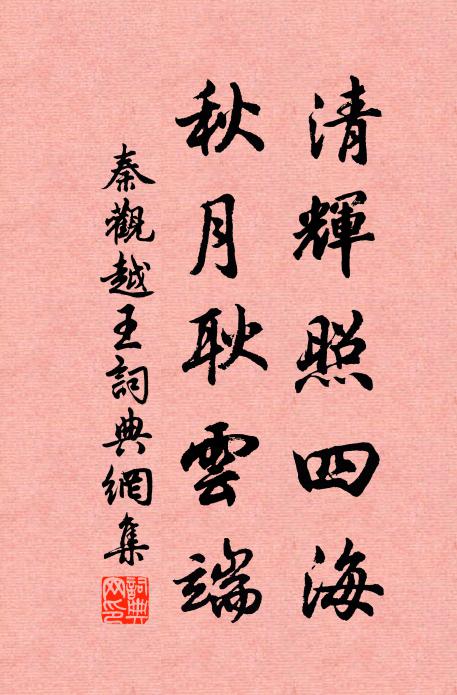 清輝照四海
秋月耿雲端
秦觀越王詞典網集
詞典网印